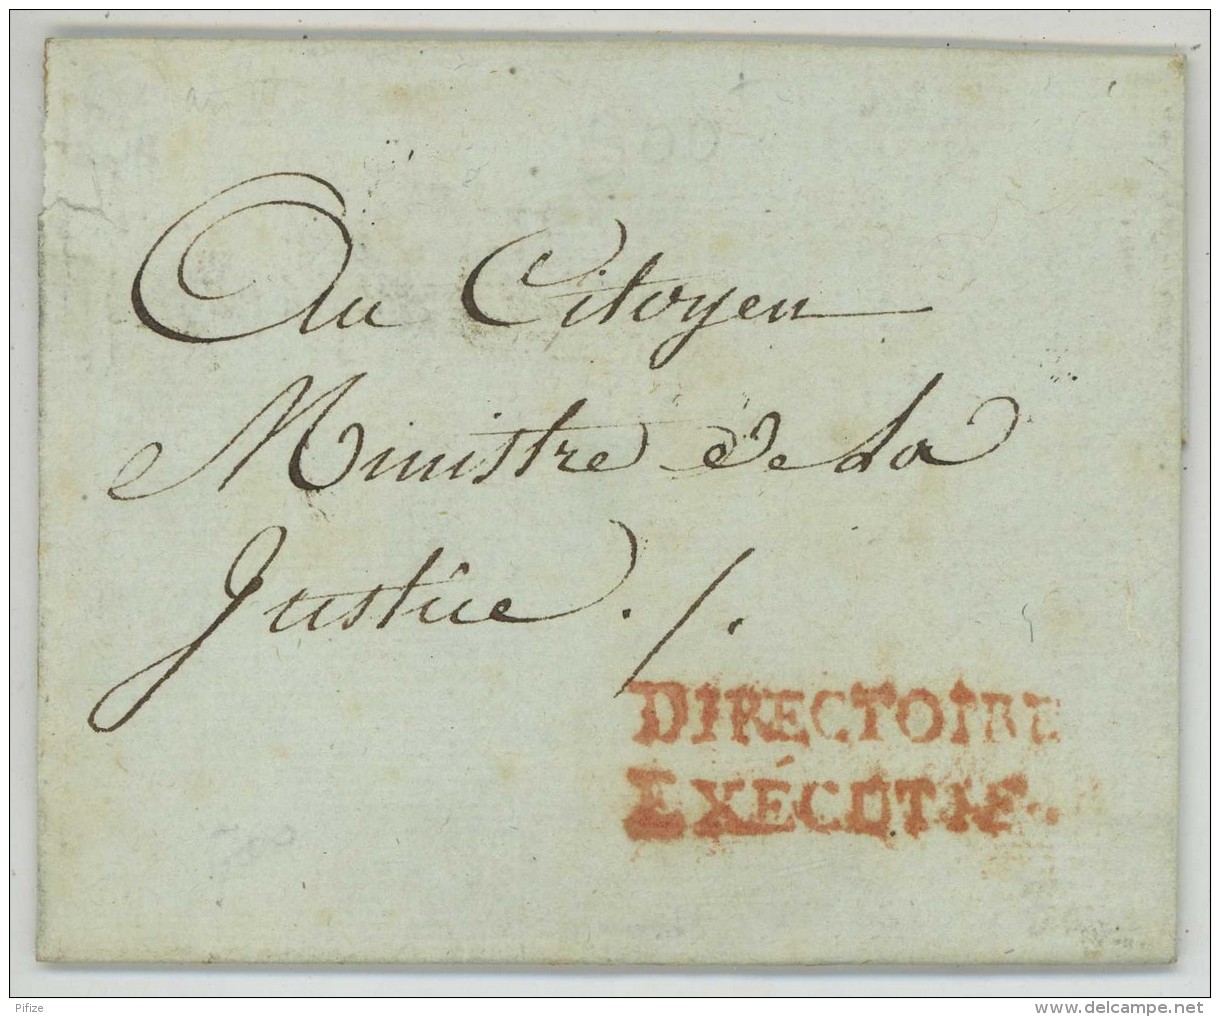 an
200
Au Citoyen
Ministre de La
Justice . / .
DIRECTOIRE
EXÉCUTIF.
Pifize
delcampe.net